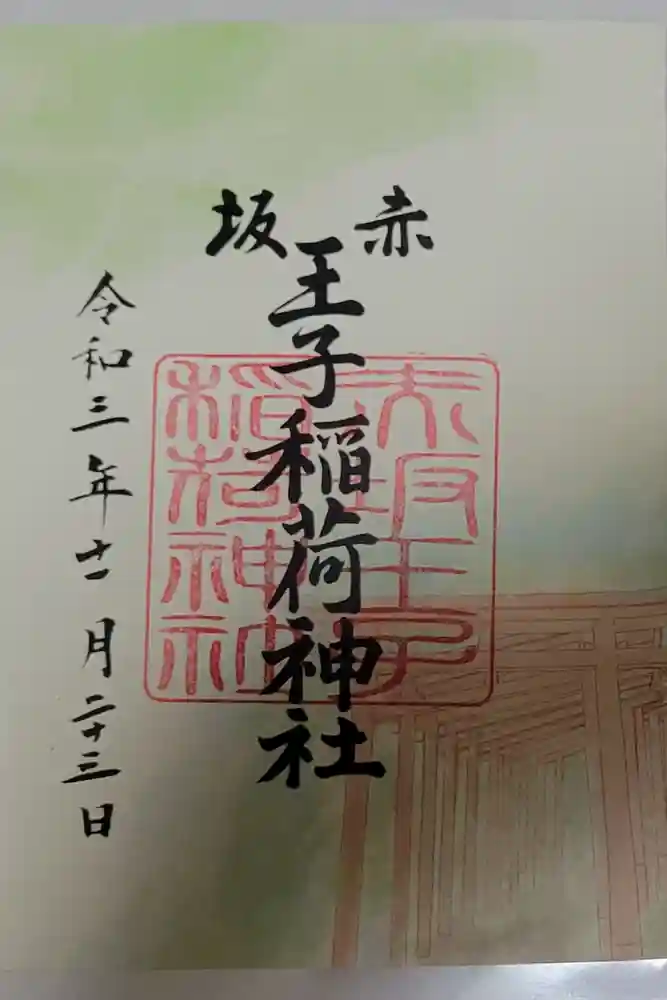 赤坂
王子稲荷神社
赤坂王子
稲荷神社
令和三年十一月二十三日